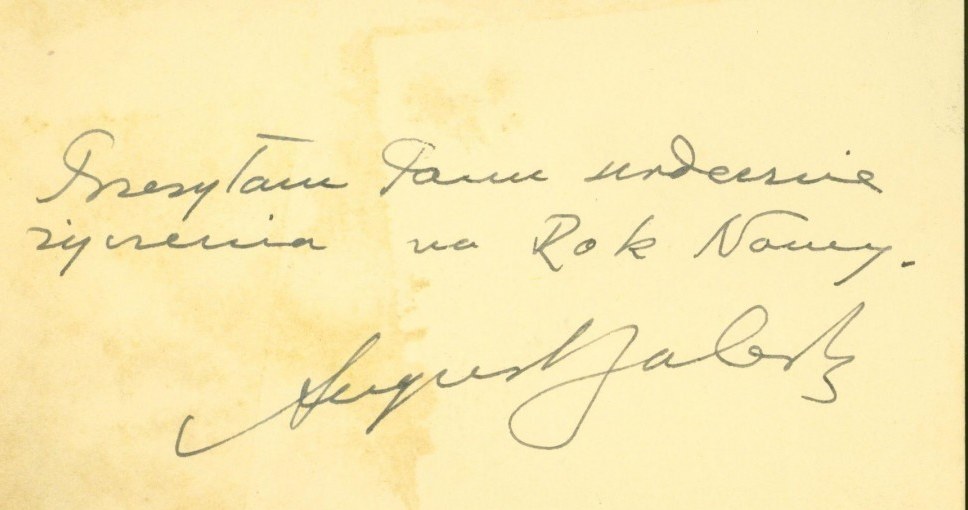 Przesyłam Panu serdeczne
życzenia na Rok Nowy.
August Zaleski